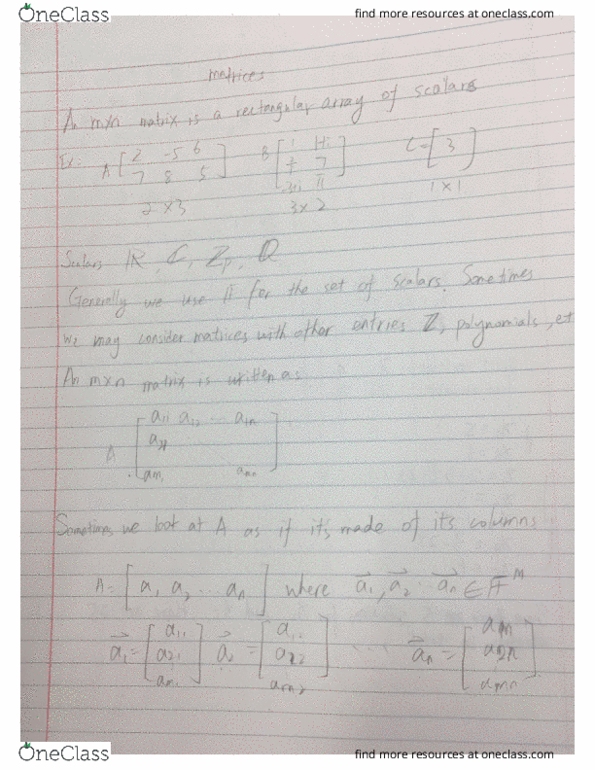 OneClass
find more resources at oneclass.com
matrices
An mxn matrix is a rectangular array of scalars
Ex: A [ 2 -5 6
7 8 5 ]
2 x 3
B [ i
7
π ]
3 x 2
C = [ 3 ]
1 x 1
Scalars ℝ, ℂ, ℤp, ℚ
Generally we use for the set of scalars. Sometimes
we may consider matrices with other entries ℤ, polynomials, et
An mxn matrix is written as
A [ a11 a12 ... a1n
a21
am1 amn ]
Sometimes we look at A as if it's made of its columns
A = [ a1 a2 ... an ] where a⃗1, a⃗2 a⃗n ∈ F^m
a⃗1 = [ a11 a21 am1 ] a⃗2 = [ a12 a22 am2 ] ... a⃗n = [ a2n amn ]
OneClass
find more resources at oneclass.com